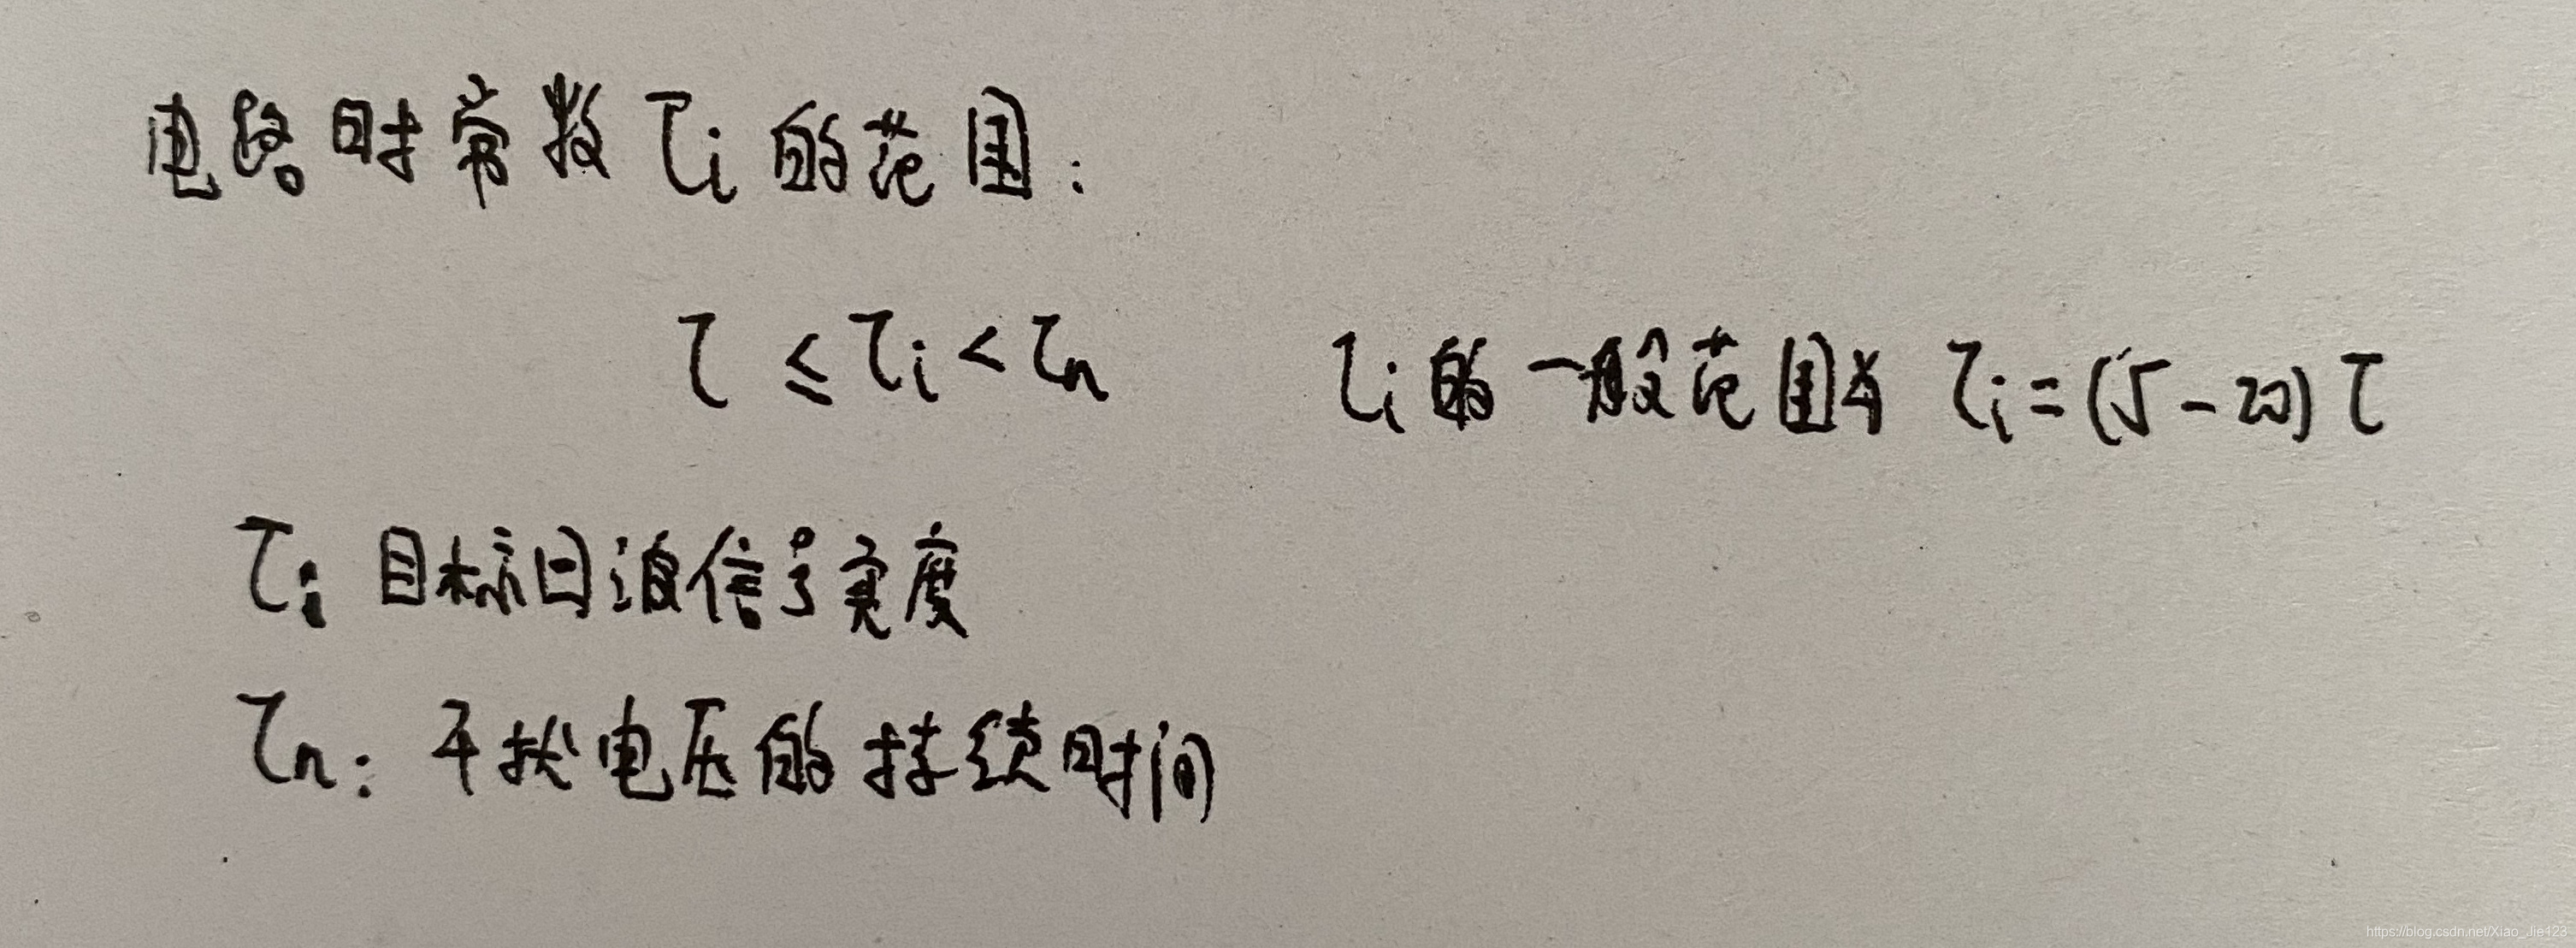 电路时常数 τi 的范围:
τ ≤ τi < τn
τi 的一般范围为 τi = (5 - 20) τ
τ: 目标回波信号宽度
τn: 干扰电压的持续时间
https://blog.csdn.net/Xiao_Jie123